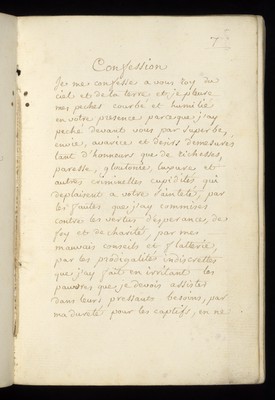 7
Confession
Je me confesse a vous roy du
ciel et de la terre et je pleure
mes peches courbé et humilié
en votre presence parceque j'ay
peché devant vous par superbe,
envie, avarice et desirs demesurés
tant d'honneurs que de richesses,
paresse, gloutonie, luxure et
autres criminelles cupidités qui
deplaisent a votre sainteté, par
les fautes que j'ay commises
contre les vertus d'esperance, de
foy et de charité, par mes
mauvais conseils et flatterie,
par les prodigalités indiscrettes
que j'ay fait en irritant les
pauvres que je devois assister
dans leurs pressants besoins, par
ma dureté pour les captifs, en ne